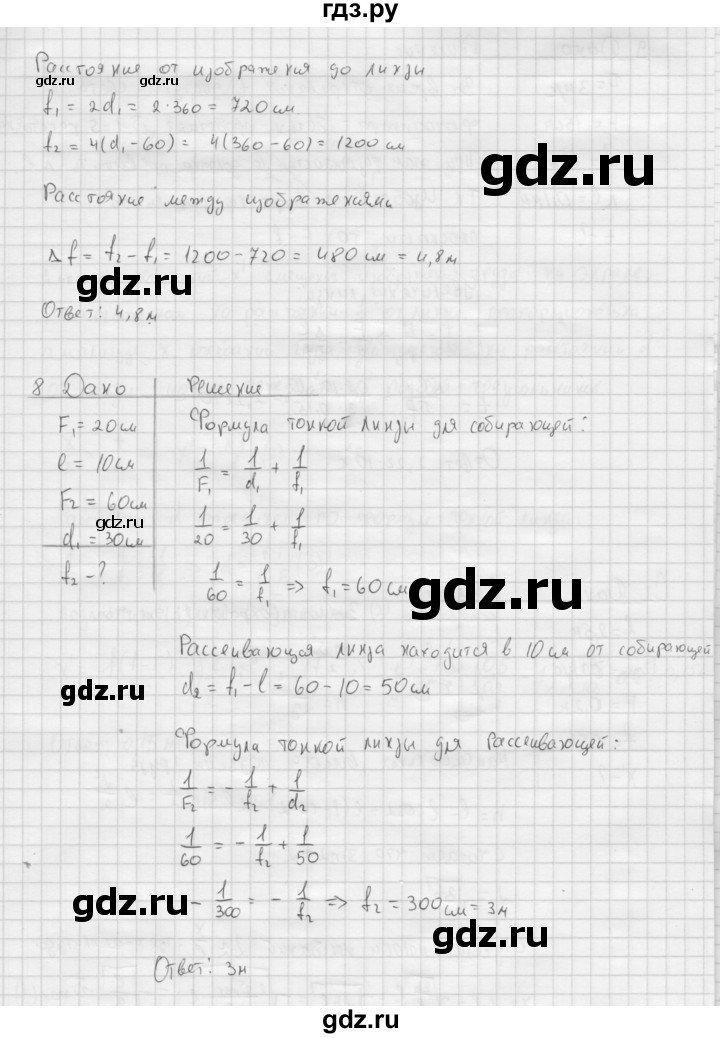 гдз.ру
Расстояние от изображения до линзы
gdz.ru gdz.ru
f₁ = 2d₁ = 2·360 = 720 см
f₂ = 4(d₁ - 60) = 4(360 - 60) = 1200 см
gdz.ru
Расстояние между изображениями
Δf = f₂ - f₁ = 1200 - 720 = 480 см = 4,8 м
gdz.ru
Ответ: 4,8 м
8 Дано Решение
F₁ = 20 см Формула тонкой линзы для собирающей:
l = 10 см 1/F₁ = 1/d₁ + 1/f₁
F₂ = 60 см
gdz.ru
d₁ = 30 см 1/20 = 1/30 + 1/f₁
f₂ - ? 1/60 = 1/f₁ => f₁ = 60 см
gdz.ru
Рассеивающая линза находится в 10 см от собирающей
gdz.ru
d₂ = f₁ - l = 60 - 10 = 50 см
Формула тонкой линзы для рассеивающей:
1/F₂ = - 1/f₂ + 1/d₂
1/60 = - 1/f₂ + 1/50
gdz.ru
- 1/300 = - 1/f₂ => f₂ = 300 см = 3 м
gdz.ru
Ответ: 3 м
gdz.ru